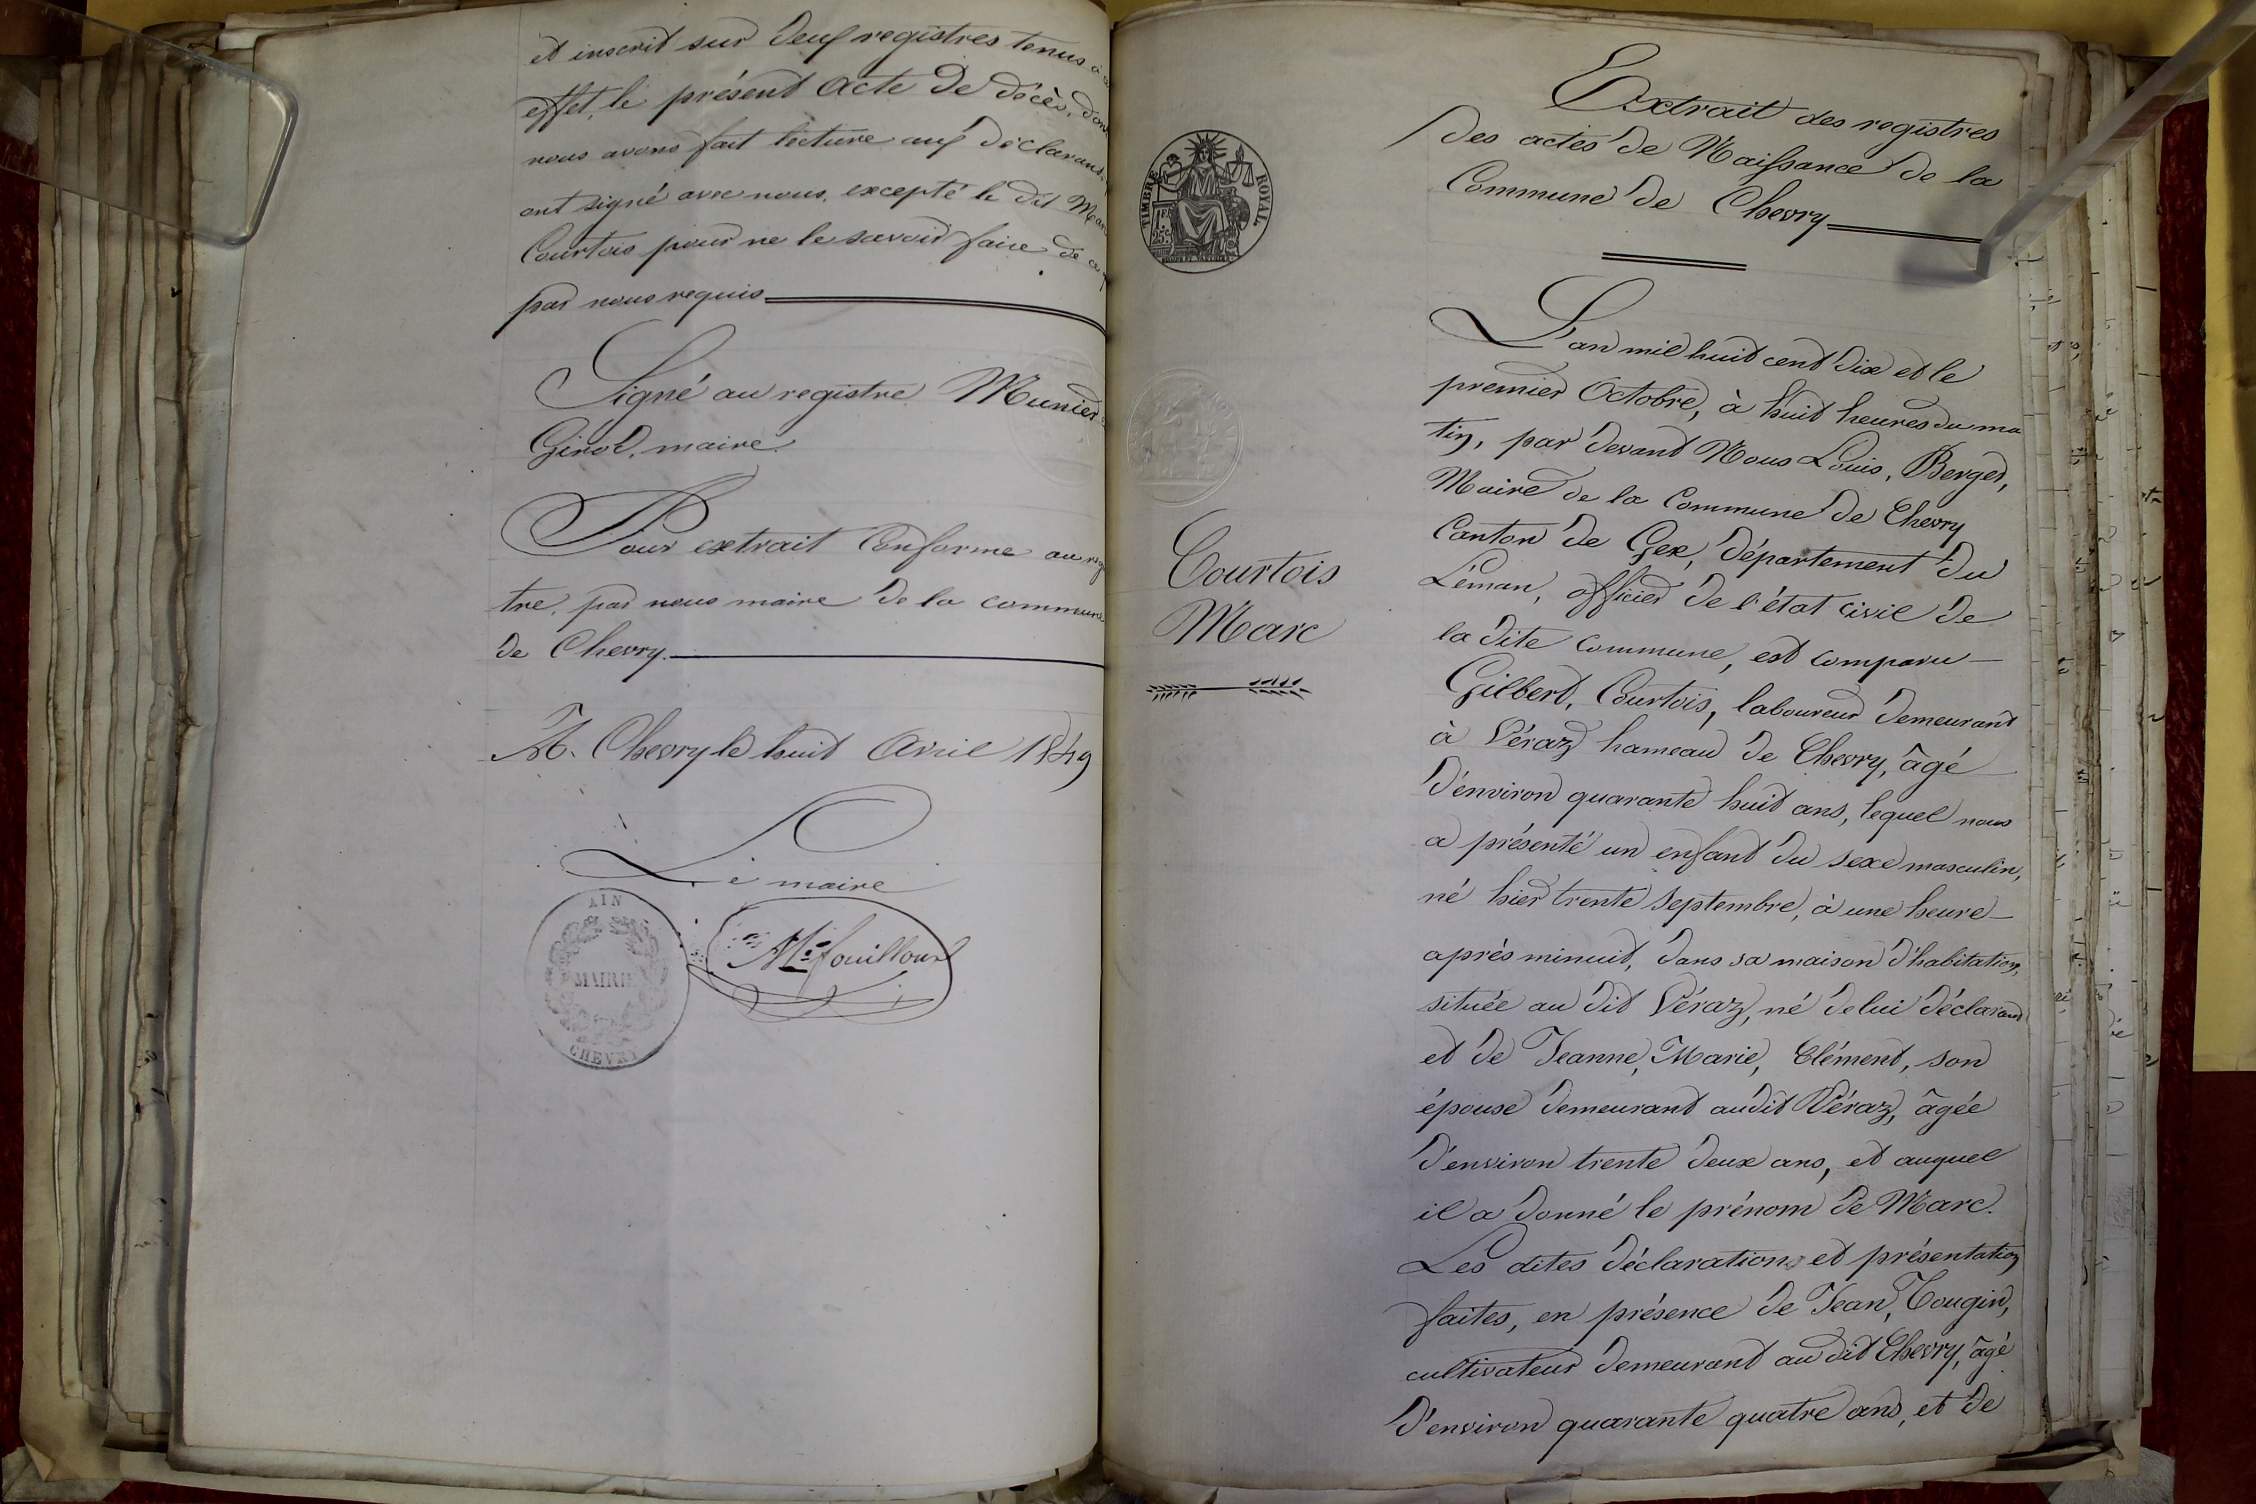 et inscrit sur deux registres tenus à
effet, le présent acte de décès, dont
nous avons fait lecture aux déclarans,
ont signé avec nous, excepté le dit Marc
Courtois pour ne le savoir faire de ce
par nous requis
Signé au registre Munier
Girod, maire.
Pour extrait conforme au regis
tre, par nous maire de la commune
de Chevry.
A. Chevry le huit avril 1849
Le maire
AIN
MAIRIE
CHEVRY
Extrait des registres
des actes de Naissance de la
Commune de Chevry
TIMBRE ROYAL
Courtois
Marc
L'an mil huit cent dix et le
premier Octobre, à huit heures du ma
tin, par devant Nous Louis, Berger,
Maire de la Commune de Chevry
Canton de Gex, département du
Léman, officier de l'état civil de
la dite commune, est comparu
Gilbert, Courtois, laboureur demeurant
à Véraz hameau de Chevry, âgé
d'environ quarante huit ans, lequel nous
a présenté un enfant du sexe masculin,
né hier trente septembre, à une heure
après minuit, dans sa maison d'habitation,
située au dit Véraz, né de lui déclarant
et de Jeanne, Marie, Clément, son
épouse demeurant audit Véraz, âgée
d'environ trente deux ans, et auquel
il a donné le prénom de Marc.
Les dites déclarations et présentation
faites, en présence de Jean, Tougin,
cultivateur demeurant au dit Chevry, âgé
d'environ quarante quatre ans, et de